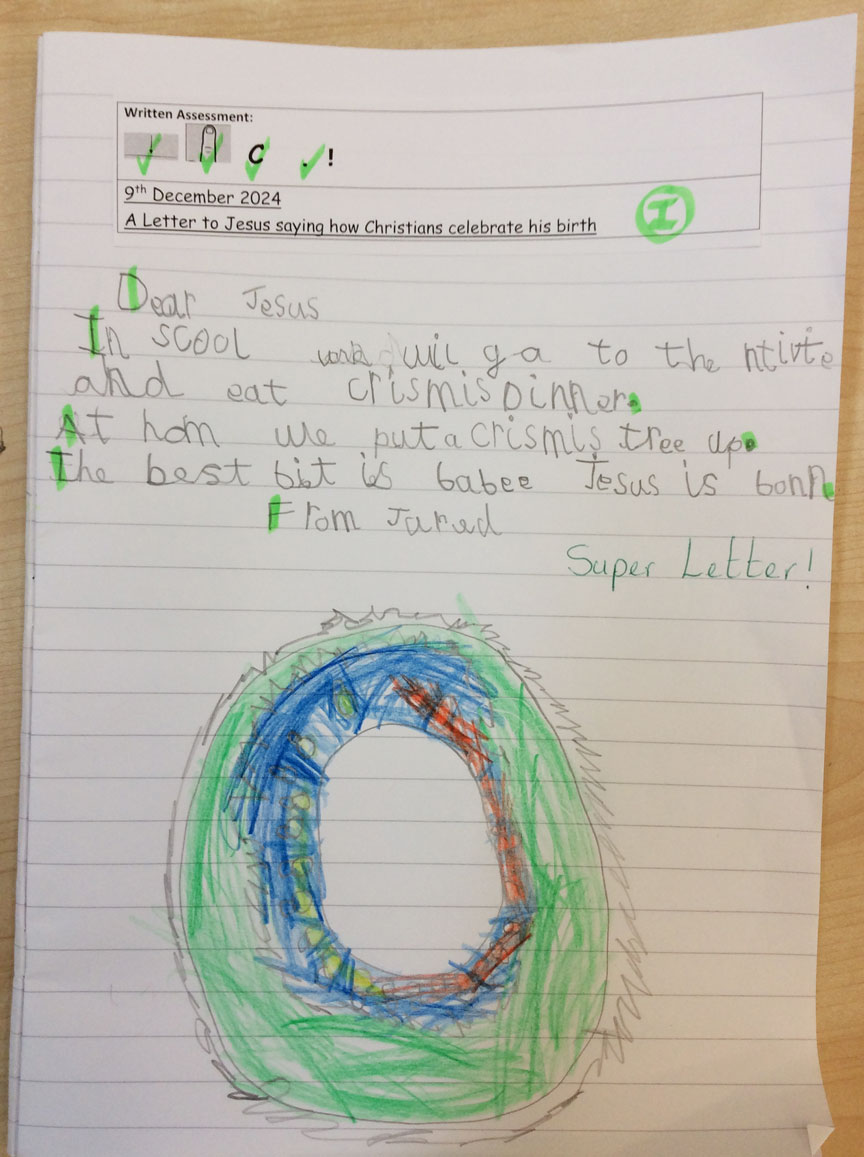 Written Assessment:
C . !
9th December 2024
A Letter to Jesus saying how Christians celebrate his birth
I
Dear Jesus
In scool wil ga to the ntivte
and eat crismis Dinner.
At hom we put a crismis tree up.
The best bit is babee Jesus is bonn.
From Jared
Super Letter!